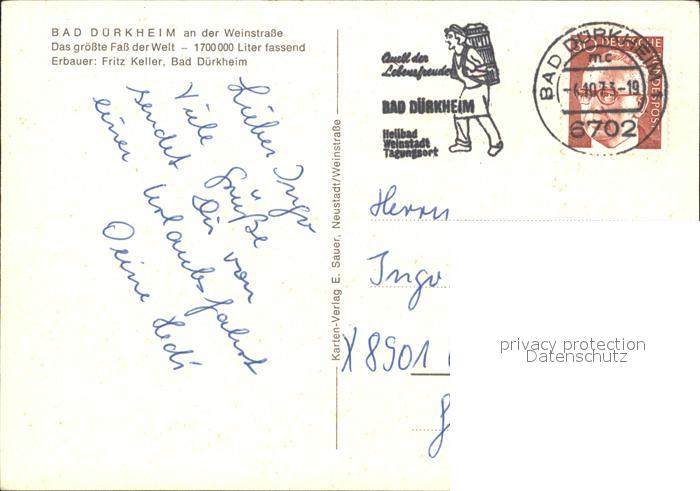 BAD DÜRKHEIM an der Weinstraße
Das größte Faß der Welt – 1700000 Liter fassend
Erbauer: Fritz Keller, Bad Dürkheim
Lieber Ingo
Viele Grüße
sendet Dir von
einer Urlaubsfahrt
Deine Hedi
Karten-Verlag E. Sauer, Neustadt/Weinstraße
Quell der
Lebensfreude
BAD DÜRKHEIM
Heilbad
Weinstadt
Tagungsort
BAD DÜRKHEIM
mc
10.73-19
6702
DEUTSCHE
BUNDESPOST
Herrn
Ingo
X 8901
privacy protection
Datenschutz